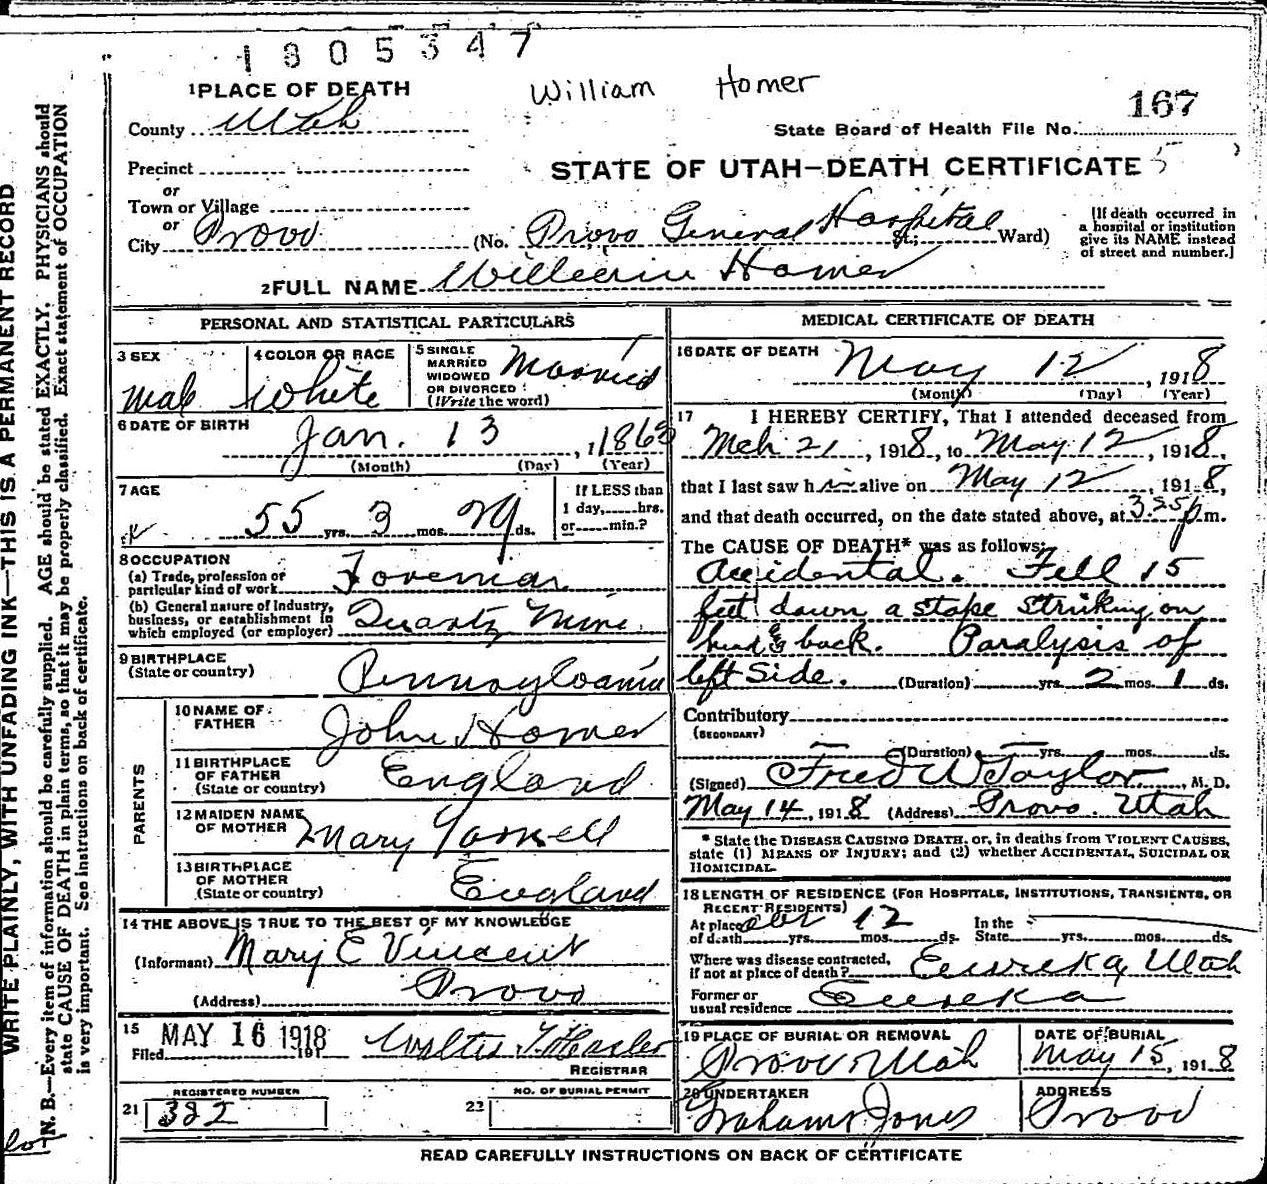 1805347
William Homer
1 PLACE OF DEATH
167
County Utah
State Board of Health File No.
Precinct
STATE OF UTAH—DEATH CERTIFICATE
or
Town or Village
or
City Provo (No. Provo General Hospital St.; Ward)
[If death occurred in
a hospital or institution
give its NAME instead
of street and number.]
2 FULL NAME William Homer
PERSONAL AND STATISTICAL PARTICULARS
3 SEX
Male
4 COLOR OR RACE
White
5 SINGLE
MARRIED
WIDOWED
OR DIVORCED
(Write the word)
Married
6 DATE OF BIRTH
Jan. 13, 1863
(Month) (Day) (Year)
7 AGE
55 yrs. 3 mos. 29 ds.
If LESS than
1 day, hrs.
or min.?
8 OCCUPATION
(a) Trade, profession or
particular kind of work Foreman
(b) General nature of Industry,
business, or establishment in
which employed (or employer) Quartz Mine.
9 BIRTHPLACE
(State or country) Pennsylvania
PARENTS
10 NAME OF
FATHER John Homer
11 BIRTHPLACE
OF FATHER
(State or country) England
12 MAIDEN NAME
OF MOTHER Mary
13 BIRTHPLACE
OF MOTHER
(State or country) England
14 THE ABOVE IS TRUE TO THE BEST OF MY KNOWLEDGE
(Informant) Mary E Vincent
(Address) Provo
15
Filed MAY 16 1918 191
Walter T. Hasler
REGISTRAR
REGISTERED NUMBER
21 382
NO. OF BURIAL PERMIT
22
MEDICAL CERTIFICATE OF DEATH
16 DATE OF DEATH May 12, 1918
(Month) (Day) (Year)
17 I HEREBY CERTIFY, That I attended deceased from
Mch 21, 1918, to May 12, 1918,
that I last saw him alive on May 12, 1918,
and that death occurred, on the date stated above, at 3.25 p.m.
The CAUSE OF DEATH* was as follows:
Accidental. Fell 15
feet down a stope Striking on
head & back. Paralysis of
left Side. (Duration) yrs. 2 mos. 1 ds.
Contributory
(SECONDARY)
(Duration) yrs. mos. ds.
(Signed) Fred W Taylor, M. D.
May 14, 1918 (Address) Provo. Utah
* State the DISEASE CAUSING DEATH, or, in deaths from VIOLENT CAUSES,
state (1) MEANS OF INJURY; and (2) whether ACCIDENTAL, SUICIDAL OR
HOMICIDAL.
18 LENGTH OF RESIDENCE (FOR HOSPITALS, INSTITUTIONS, TRANSIENTS, OR
RECENT RESIDENTS)
At place
of death yrs. 12 mos. ds. In the
State yrs. mos. ds.
Where was disease contracted,
if not at place of death? Eureka, Utah
Former or
usual residence Eureka
19 PLACE OF BURIAL OR REMOVAL
Provo Utah
DATE OF BURIAL
May 15, 1918
20 UNDERTAKER
Graham & Jones
ADDRESS
Provo
READ CAREFULLY INSTRUCTIONS ON BACK OF CERTIFICATE
WRITE PLAINLY, WITH UNFADING INK—THIS IS A PERMANENT RECORD
N. B.—Every item of information should be carefully supplied. AGE should be stated EXACTLY. PHYSICIANS should
state CAUSE OF DEATH in plain terms, so that it may be properly classified. Exact statement of OCCUPATION
is very important. See instructions on back of certificate.